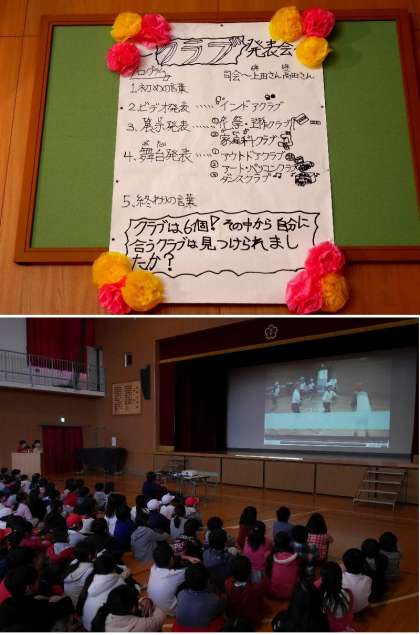 クラブ発表会
プログラム
司会〜上田さん高田さん
1.初めの言葉
2.ビデオ発表……インドアクラブ
3.展示発表……①
クラブ
②家庭科クラブ
4.舞台発表……①アウトドアクラブ
②アート・パソコンクラブ
③ダンスクラブ
5.終わりの言葉
クラブは、6個!その中から自分に
合うクラブは見つけられまし
たか?